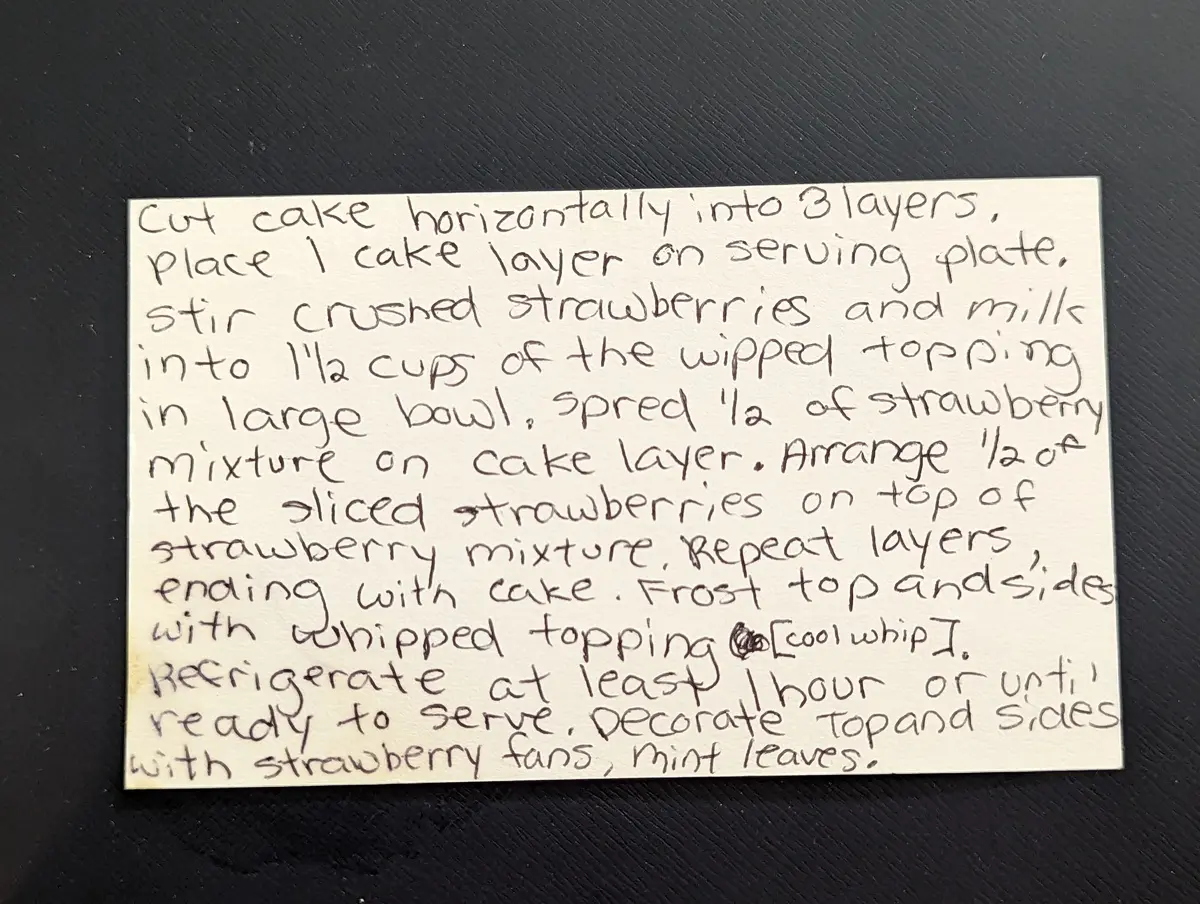 Cut cake horizontally into 3 layers.
Place 1 cake layer on serving plate.
Stir crushed strawberries and milk
into 1 1/2 cups of the wipped topping
in large bowl. Spred 1/2 of strawberry
mixture on cake layer. Arrange 1/2 of
the sliced strawberries on top of
strawberry mixture. Repeat layers,
ending with cake. Frost top and sides
with whipped topping [cool whip].
Refrigerate at least 1 hour or until
ready to serve. Decorate Top and sides
with strawberry fans, mint leaves.